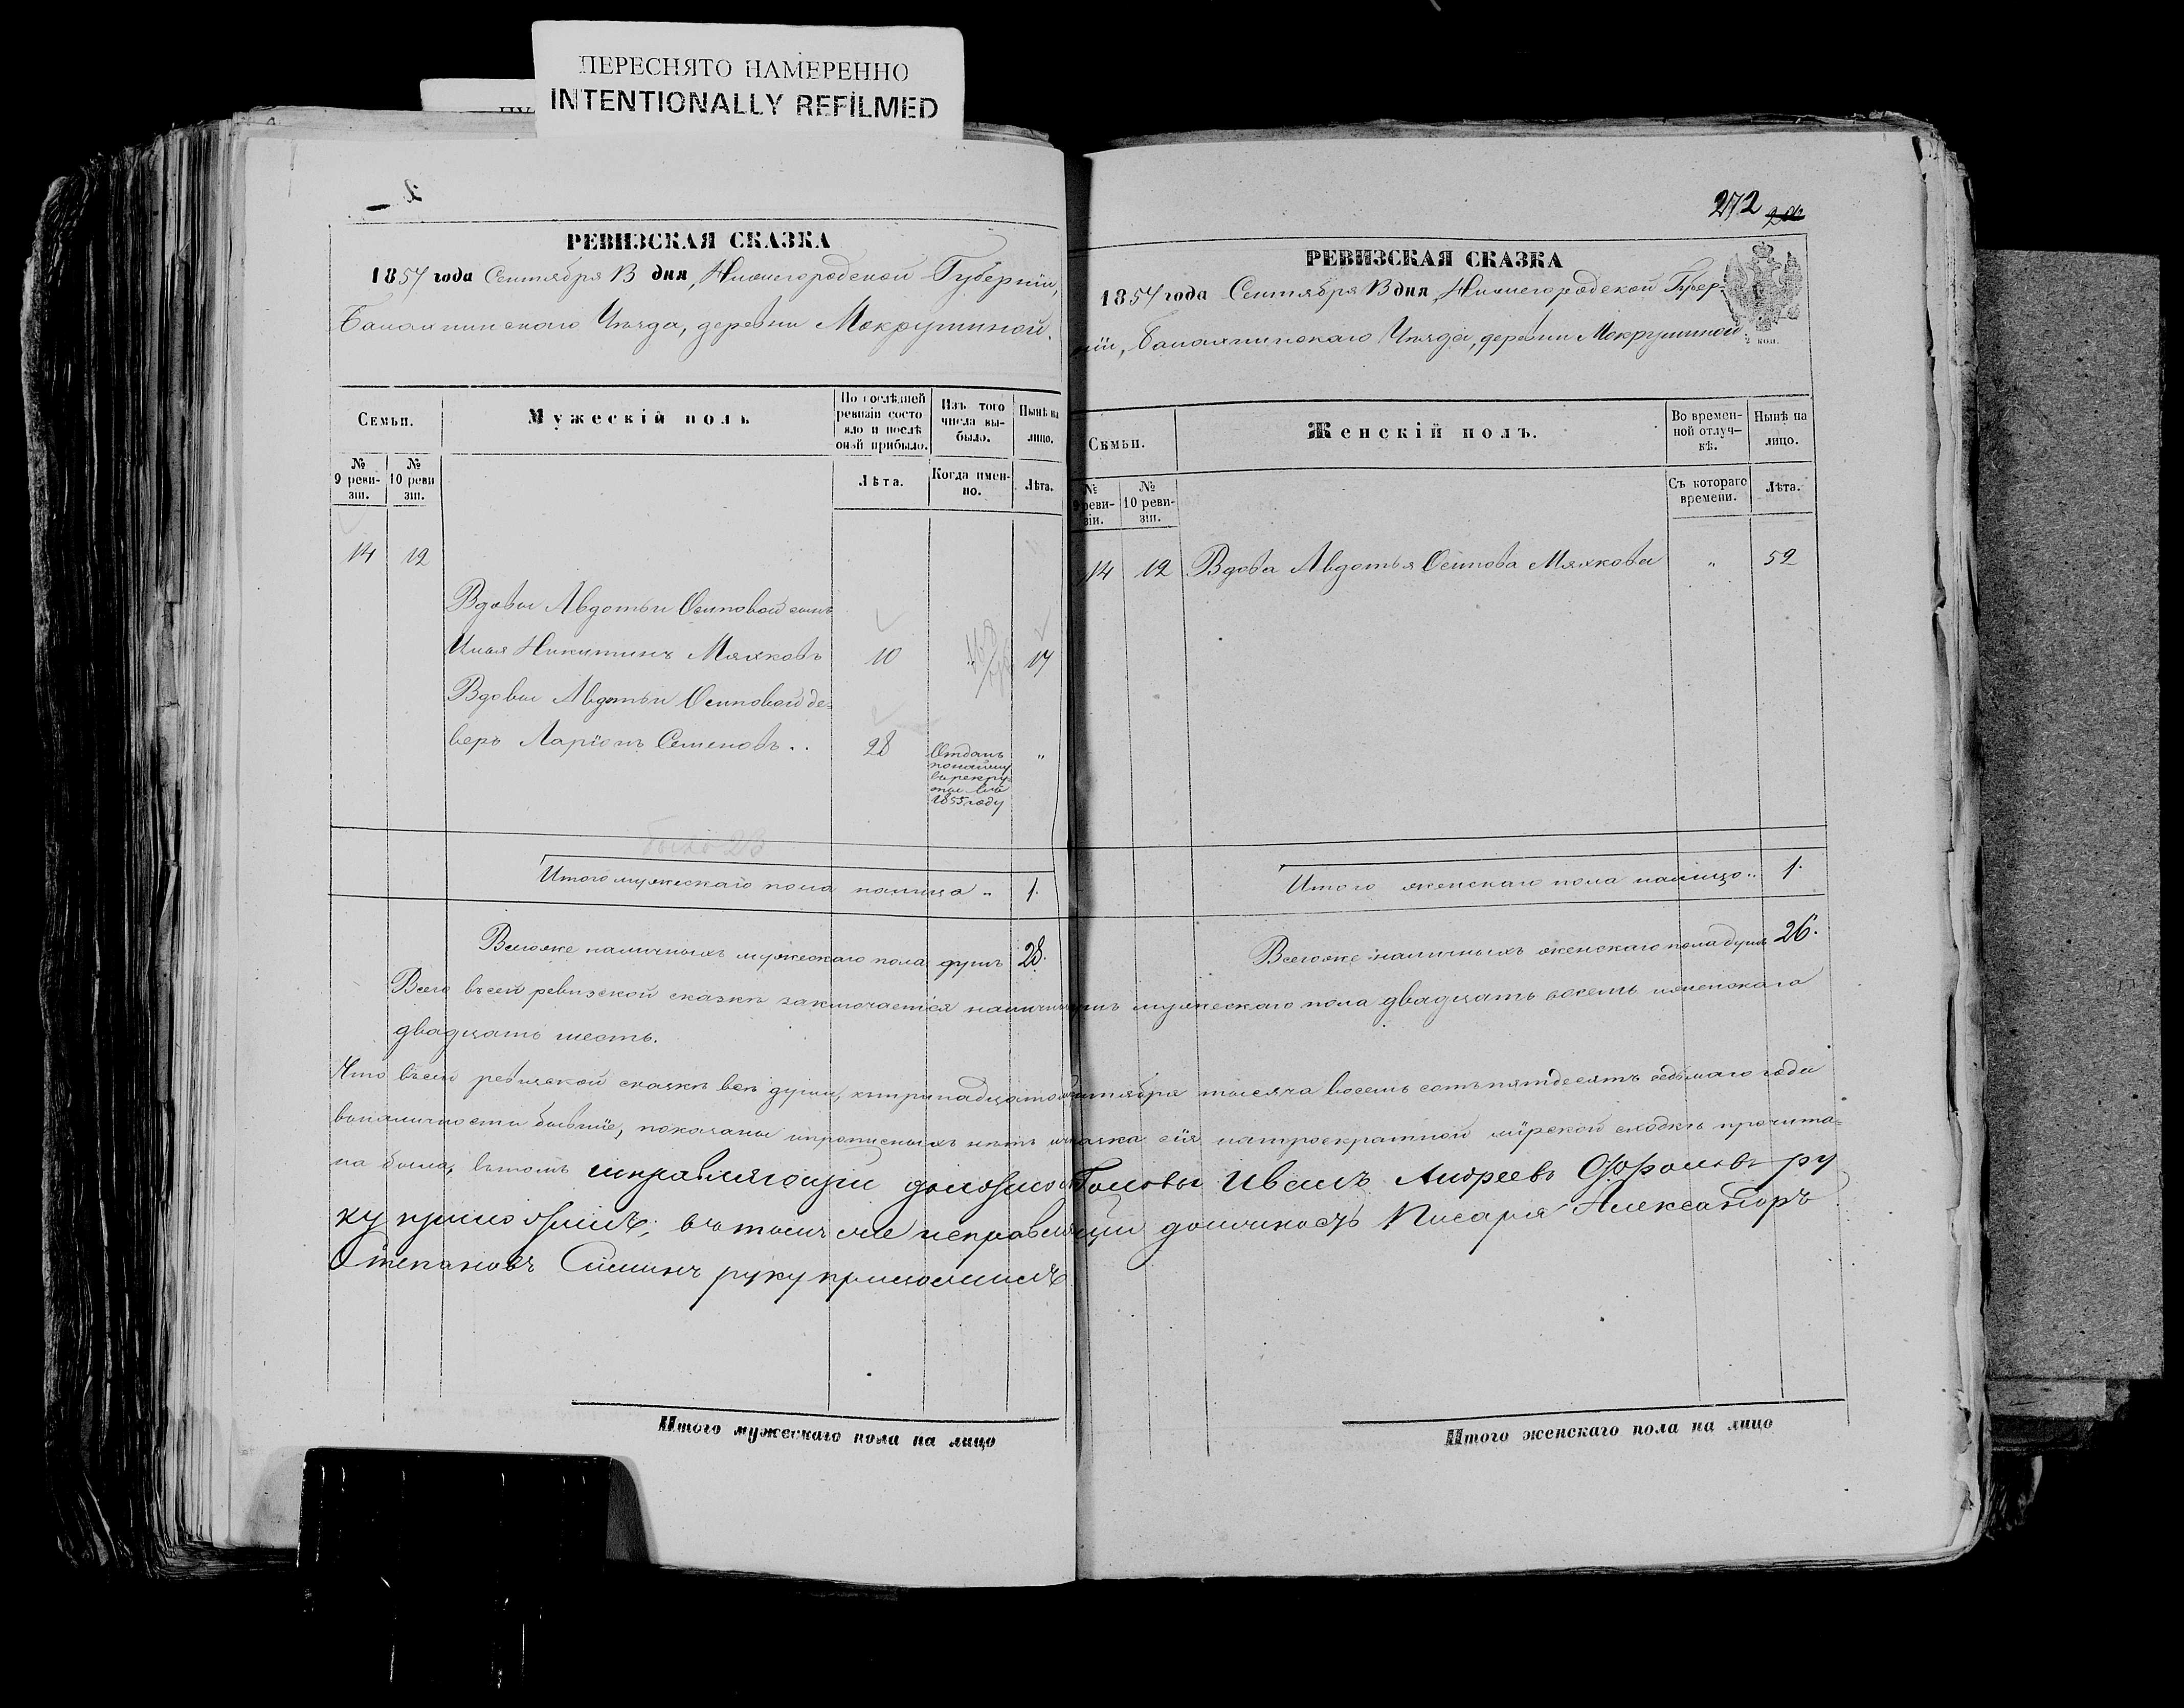 ПЕРЕСНЯТО НАМЕРЕННО
INTENTIONALLY REFILMED
РЕВИЗСКАЯ СКАЗКА
1857 года Сентября 13 дня, Нижегородской Губерніи,
Балахнинскаго Уѣзда, деревни Мокрушиной.
Семьи.
Мужескій полъ
По послѣдней ревизіи состояло и послѣ оной прибыло.
Изъ того числа выбыло.
Нынѣ на лицо.
№ 9 ревизіи.
№ 10 ревизіи.
Лѣта.
Когда именно.
Лѣта.
14 12
Вдовы Авдотьи Осиповой сынъ
Илья Никитинъ Мяхковъ 10 " 17
Вдовы Авдотьи Осиповой де-
верь Ларіонъ Семеновъ .. 28 "
Отданъ
по найму
въ рекру
ты въ
1855 году
Было 23
Итого мужескаго пола налицо " 1.
Всего же наличныхъ мужескаго пола душъ 28.
272
РЕВИЗСКАЯ СКАЗКА
1857 года Сентября 13 дня, Нижегородской Губер-
ніи, Балахнинскаго Уѣзда, деревни Мокрушиной.
2 коп.
Семьи.
Женскій полъ.
Во временной отлучкѣ.
Нынѣ на лицо.
№ 9 ревизіи.
№ 10 ревизіи.
Съ котораго времени.
Лѣта.
14 12 Вдова Авдотья Осипова Мяхкова " 52
Итого женскаго пола налицо .. 1.
Всего же наличныхъ женскаго пола душъ 26.
Всего въ сей ревизской сказкѣ заключается наличныхъ мужескаго пола двадцать восемь и женскаго
двадцать шесть.
Что въ сей ревизской сказкѣ всѣ души, къ тринадцатому сентября тысяча восемь сотъ пятдесятъ седьмаго года
въ наличности бывшіе, показаны и прописныхъ нѣтъ и сказка сія на троекратной мірской сходкѣ прочита-
на была, въ томъ исправляющи должность Головы Иванъ Андреевъ ру
ку приложилъ; въ томъ же исправляющи должность Писаря Александръ
Степановъ руку приложилъ
Итого мужескаго пола на лицо
Итого женскаго пола на лицо